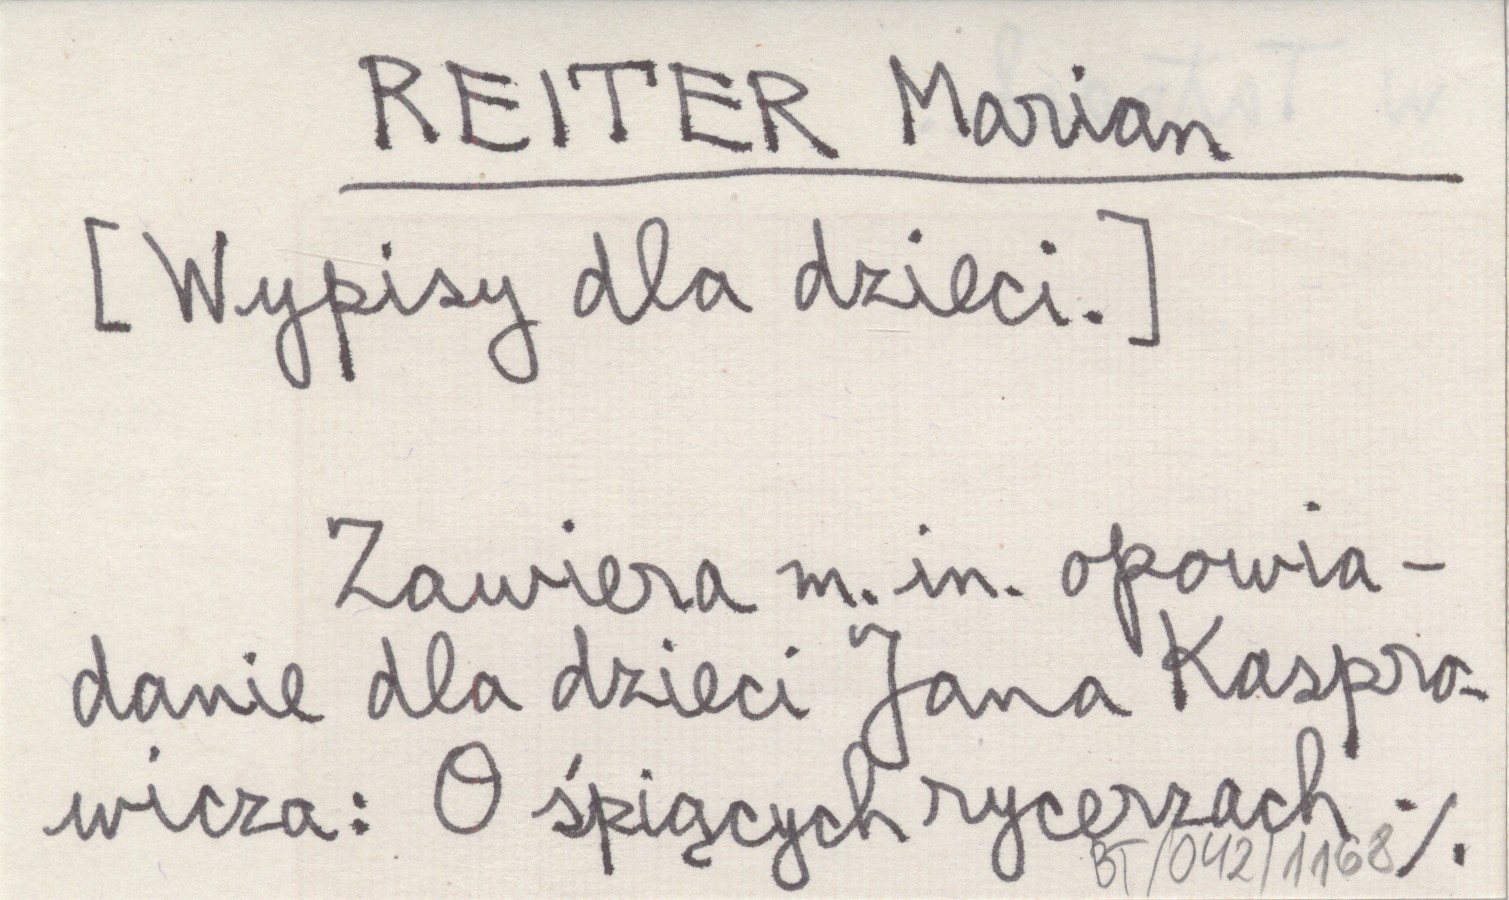 REITER Marian
[Wypisy dla dzieci.]
Zawiera m.in. opowia-
danie dla dzieci Jana Kaspro-
wicza: O śpiących rycerzach ./.
BT/042/1168